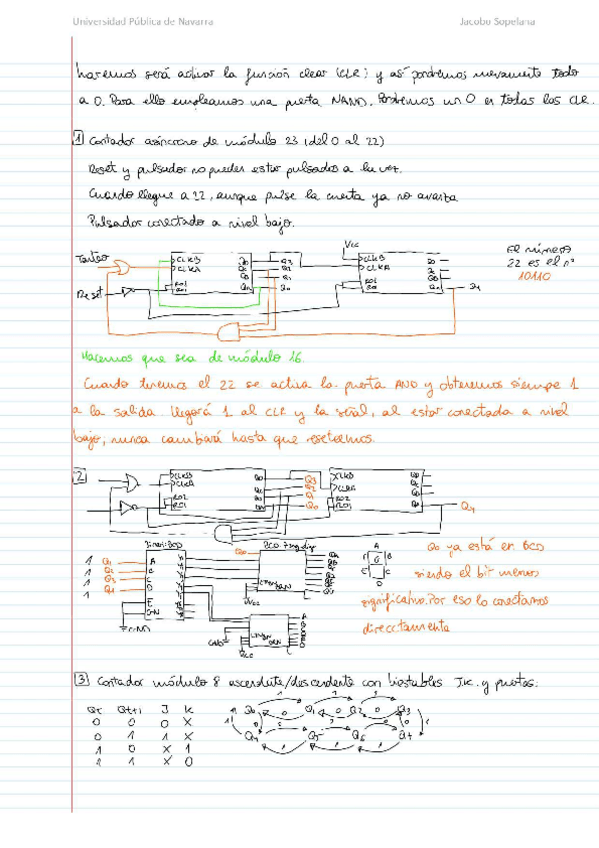 Universidad Pública de Navarra
Jacobo Sopelana
haremos será activar la función clear (CLR) y así pondremos nuevamente todo
a 0. Para ello empleamos una puerta NAND. Pondremos un 0 en todas las CLR.
1 Contador asíncrono de módulo 23 (del 0 al 22)
Reset y pulsador no pueden estar pulsados a la vez.
Cuando llegue a 22, aunque pulse la cuenta ya no avanza
Pulsador conectado a nivel bajo.
Vcc
El número
22 es el nº
10110
Tanteo
CLKB
CLKA
RO1
Q3
Q2
Q1
Q0
CLKB
CLKA
RO1
Q4
Reset
Hacemos que sea de módulo 16.
Cuando tenemos el 22 se activa la puerta AND y obtenemos siempre 1
a la salida. Llegará 1 al CLR y la señal, al estar conectada a nivel
bajo, nunca cambiará hasta que reseteemos.
2
CLKB
CLKA
RO2
RO1
Q3
Q2
Q1
Q0
CLKB
CLKA
RO2
RO1
Q4
Q0 ya está en BCD
siendo el bit menos
significativo. Por eso lo conectamos
directamente
1 Q1
1 Q2
1 Q3
1 Q4
A
B
C
D
E
Q0
Vcc
GND
Vcc
3 Contador módulo 8 ascendente/descendente con biestables J.K. y puertas.
Qt Qt+1 J K
0 0 0 X
0 1 1 X
1 0 X 1
1 1 X 0
Q0 Q1 Q2 Q3
Q4 Q5 Q6 Q7